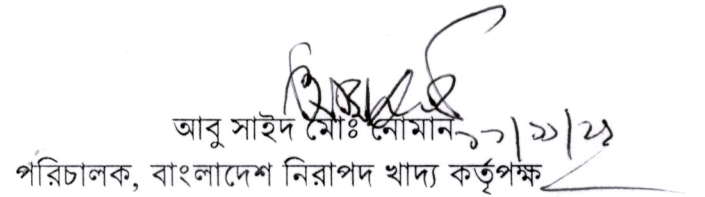 আবু সাইদ মোঃ নোমান
পরিচালক, বাংলাদেশ নিরাপদ খাদ্য কর্তৃপক্ষ